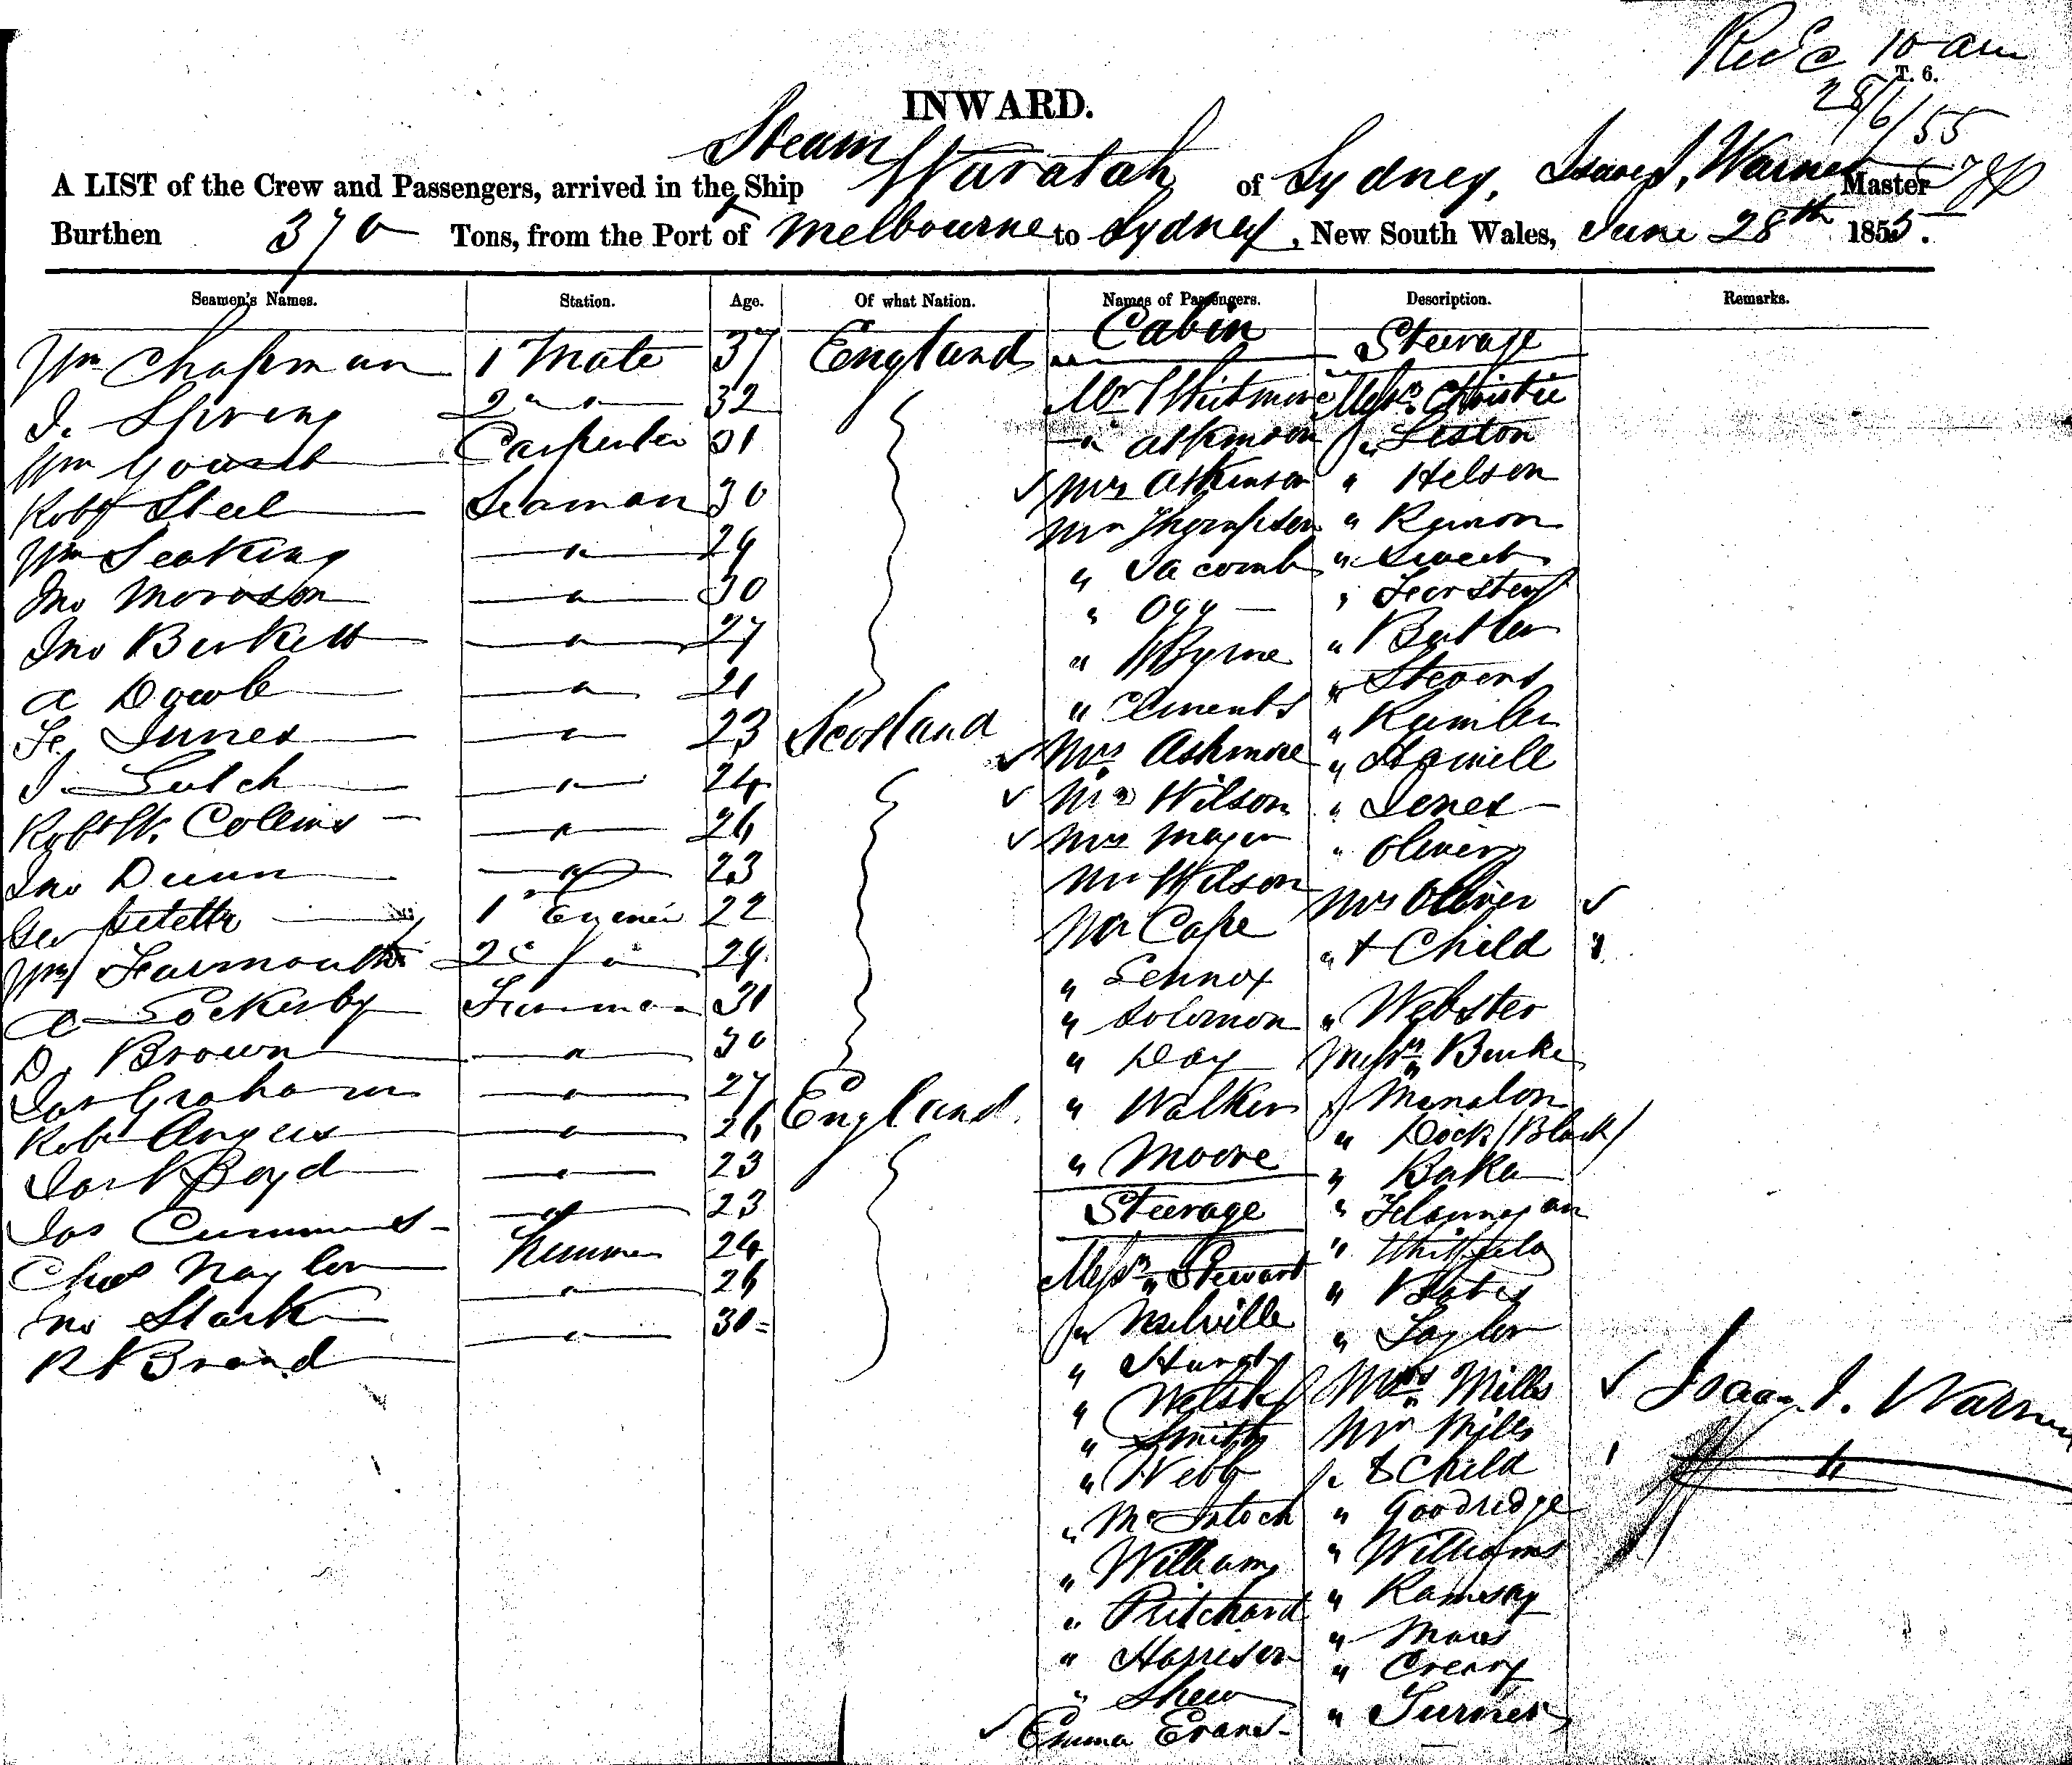 Recd 10 am
T. 6.
28/6/55
INWARD.
Steam
A LIST of the Crew and Passengers, arrived in the Ship Waratah of Sydney, Isaac J. Warner Master
Burthen 370 Tons, from the Port of Melbourne to Sydney, New South Wales, June 28th 1855.
Seamen's Names. Station. Age. Of what Nation. Names of Passengers. Description. Remarks.
Cabin Steerage
Wm Chapman 1 Mate 37 England
J. Spring 2 " " 32 Mr Whitmore Messrs Christie
Wm Carpenter 31 " Atkinson " Leston
Robt Steel Seaman 30 Mrs Atkinson " Helson
Wm Seaking " 29 Mr Thompson "
Jno Morrison " 30 " Jacomb " Sweet
Jno Birkett " 27 " Ogg "
A " 21 " Byrne " Butler
" 23 Scotland " Clements " Stevens
J. " 24 Mrs Ashmore "
Robt W. Collins " 26 Mrs Wilson "
Jno Dunn " 23 Mrs Mayer " Jones
Geo 1st 22 Mr Wilson " Oliver
Wm 2 " 29 Mr Cape Mrs Oliver
A Lockerby 31 " Lennox " & Child 1
D. Brown " 30 " Solomon " Webster
Jas Graham " 27 England " Day Messrs Burke
Robt Angus " 26 " Walker "
Jas Boyd " 23 " Moore " Dock (Black)
Jas " 23 Steerage " Baker
Chas Naylor 24 Messrs Stewart " Flannagan
Jno Stark " 26 " Melville " Whitfield
R Brand " 30 " Hurst " Bates
" Welsh " Taylor
" Smith Mrs Mills
" Webb Mr Mills
" McIntoch " & Child 1
" Williams " Goodridge
" Pritchard " Williams
" Harrison " Ramsay
" Shew "
Emma Evans " Creary
" Turner
Isaac J. Warner